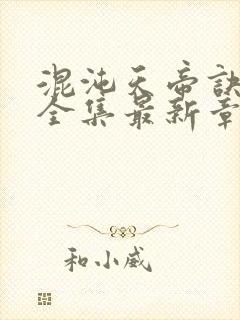 混沌天帝訣
全集最新章
和小威